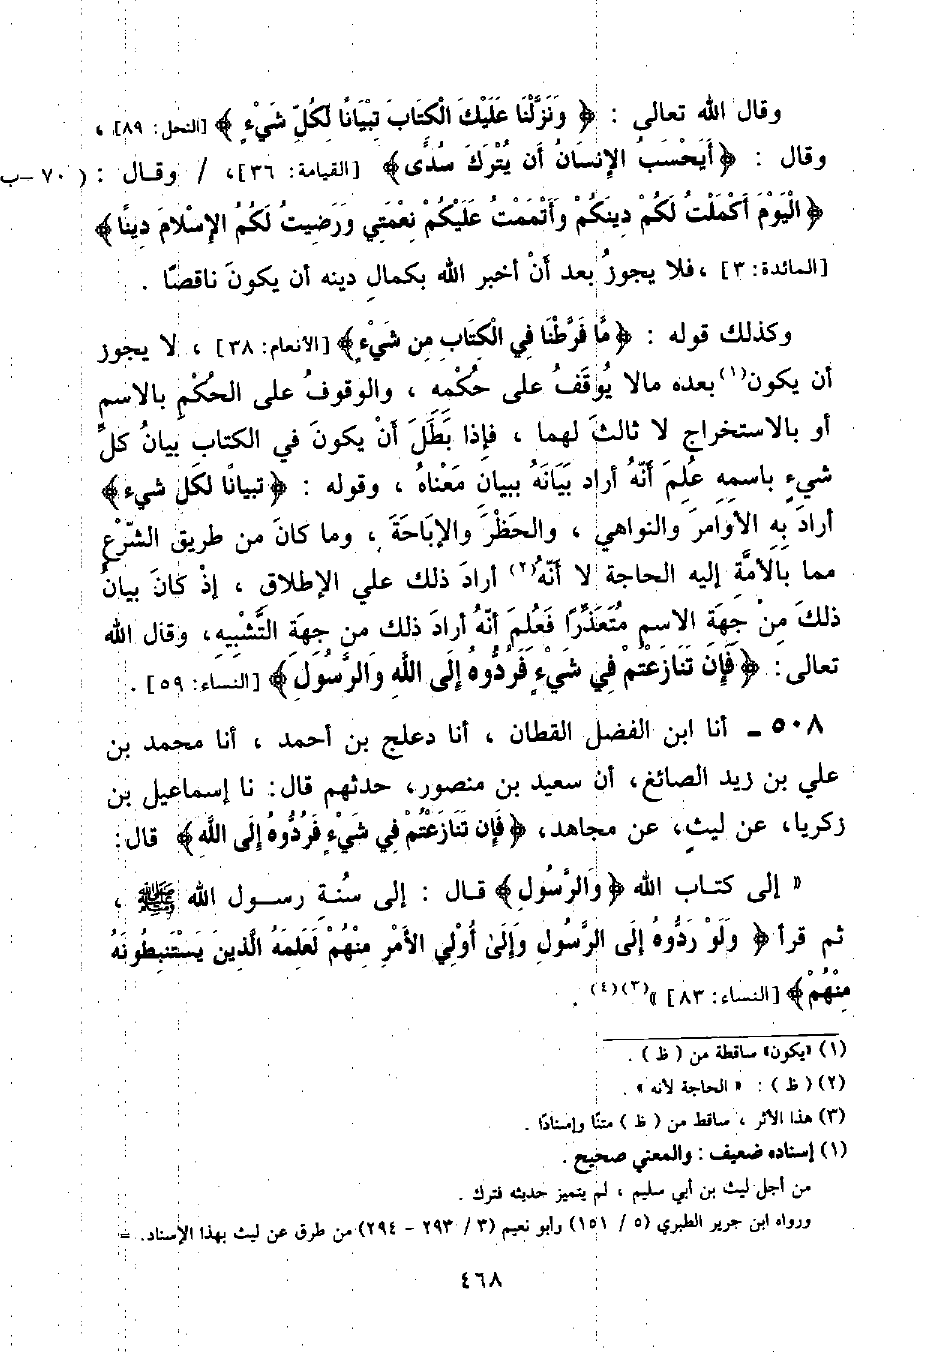 وقال الله تعالى : ﴿ وَنَزَّلْنَا عَلَيْكَ الْكتَابَ تِبْيَانًا لكُلِّ شَيْءٍ ﴾ [النحل: ٨٩] ،
وقال : ﴿أَيَحْسَبُ الإِنسَانُ أَن يُتْرَكَ سُدًى﴾ [القيامة: ٣٦]، / وقـال : ( ٧٠ -ب
﴿الْيَوْمَ أَكْمَلْتُ لَكُمْ دِينَكُمْ وَأَتْمَمْتُ عَلَيْكُمْ نِعْمَتِي وَرَضِيتُ لَكُمُ الإِسْلامَ دِينًا﴾
[المائدة: ٣] ،فلا يجوزُ بعد أَنْ أخبر الله بكمالِ دينه أن يكونَ ناقصًا .
وكذلك قوله : ﴿مَّا فَرَّطْنَا فِي الْكِتَابِ مِن شَيْءٍ﴾ [الأنعام: ٣٨] ، لا يجوز
أن يكون(١) بعده مالا يُوقَفُ على حُكْمِهِ ، والوقوفُ على الحكْمِ بالاسمِ
أو بالاستخراجِ لا ثالثَ لهما ، فإذا بَطَلَ أَنْ يكونَ في الكتاب بيانُ كلِّ
شيءٍ باسمِهِ عُلِمَ أَنَّهُ أراد بَيَانَهُ ببيانِ مَعْناهُ ، وقوله : ﴿تبيانًا لكل شيء ﴾
أرادَ بِهِ الأوامرَ والنواهي ، والحَظْرَ والإبَاحَةَ ، وما كانَ من طريق الشّرْعِ
مما بالأمَّةِ إليه الحاجة لا أنّهُ(٢) أرادَ ذلك علي الإطلاق ، إذْ كَانَ بيانُ
ذلكَ مِنْ جِهَةِ الاسمِ مُتَعَذِّرًا فَعُلِمَ أنّهُ أرادَ ذلك من جِهَةِ التَّشْبِيهِ، وقال الله
تعالى: ﴿ فَإِن تَنَازَعْتُمْ فِي شَيْءٍ فَرُدُّوهُ إِلَى اللَّهِ وَالرَّسُولِ ﴾ [النساء: ٥٩] .
٥٠٨ ـ أنا ابن الفضل القطان ، أنا دعلج بن أحمد ، أنا محمد بن
علي بن زيد الصائغ، أن سعيد بن منصور، حدثهم قال: نا إسماعيل بن
زكريا، عن ليثٍ، عن مجاهد، ﴿فَإِن تَنَازَعْتُمْ فِي شَيْءٍ فَرُدُّوهُ إِلَى اللَّهِ ﴾ قال:
« إلى كتـاب الله ﴿وَالرَّسُولِ﴾ قـال : إلى سُنـةِ رسـول الله ﷺ ،
ثم قرأ ﴿ وَلَوْ رَدُّوهُ إِلَى الرَّسُولِ وَإِلَىٰ أُوْلِي الأَمْرِ مِنْهُمْ لَعَلِمَهُ الَّذِينَ يَسْتَنبِطُونَهُ
مِنْهُمْ﴾ [النساء: ٨٣] »(٣)(٤) .
(١) «يكون» ساقطة من ( ظ ) .
(٢) ( ظ ) : « الحاجة لأنه » .
(٣) هذا الأثر ، ساقط من ( ظ ) متنًا وإسنادًا .
(١) إسناده ضعيف : والمعني صحيح .
من أجل ليث بن أبي سليم ، لم يتميز حديثه فترك .
ورواه ابن جرير الطبري (٥ / ١٥١) وأبو نعيم (٣ / ٢٩٣ - ٢٩٤) من طرق عن ليث بهذا الإسناد. =
٤٦٨